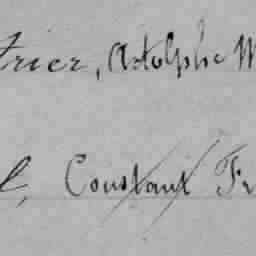 trier, Adolphe M
l, Constant Fr